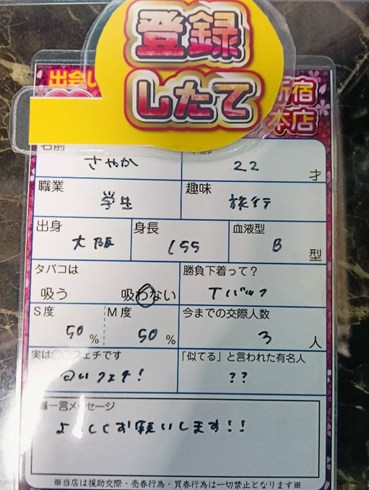 登録
したて
出会い
新宿
本店
名前
さやか
22 才
職業
学生
趣味
旅行
出身
大阪
身長
155
血液型
B 型
タバコは
吸う 吸わない
勝負下着って?
Tバック
S度
50%
M度
50%
今までの交際人数
3 人
実は〇〇フェチです
匂いフェチ!
「似てる」と言われた有名人
??
一言メッセージ
よろしくお願いします!!
※当店は援助交際・売春行為・買春行為は一切禁止となります※